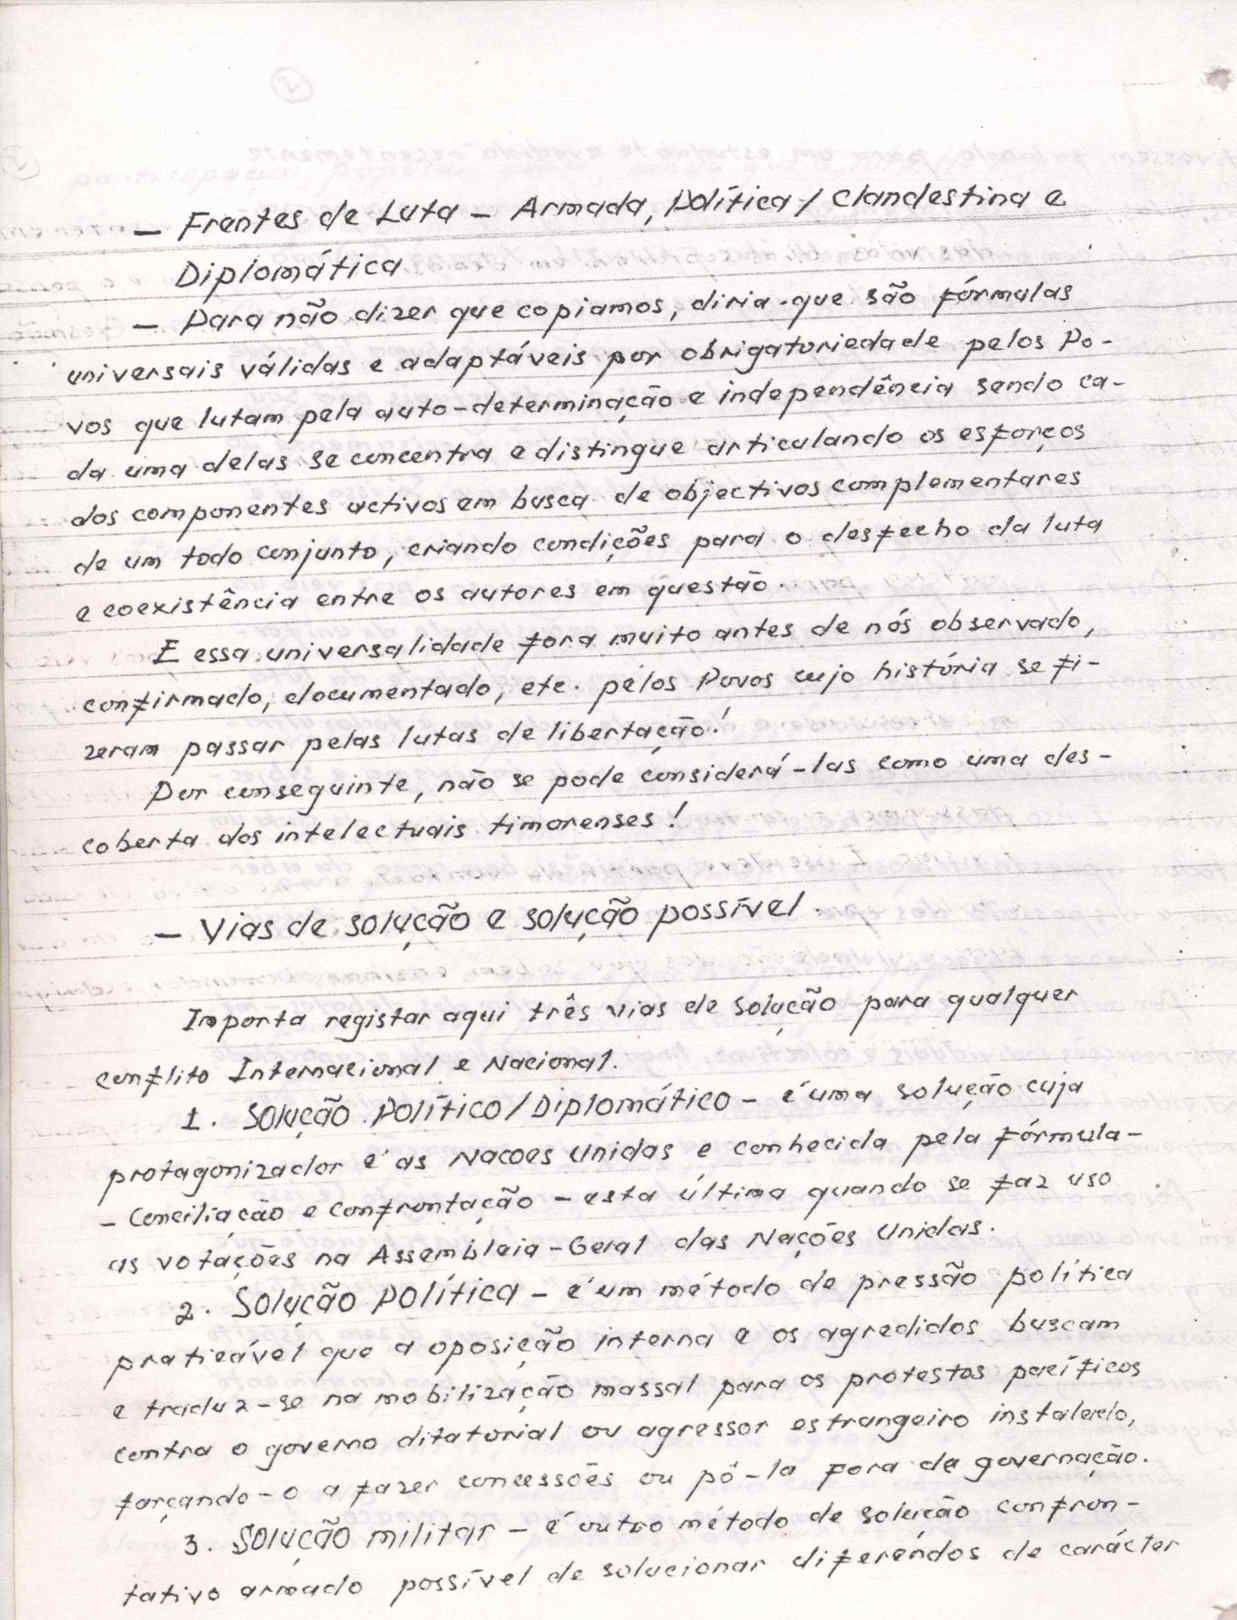 — Frentes de Luta — Armada, Política / Clandestina e
Diplomática
— Para não dizer que copiamos, diria que são fórmulas
universais válidas e adaptáveis por obrigatoriedade pelos Po-
vos que lutam pela auto-determinação e independência sendo ca-
da uma delas se concentra e distingue articulando os esforços
dos componentes activos em busca de objectivos complementares
de um todo conjunto, criando condições para o desfecho da luta
e coexistência entre os autores em questão.
E essa universalidade fora muito antes de nós observado,
confirmado, documentado, etc. pelos Povos cujo história se fi-
zeram passar pelas lutas de libertação!
Por conseguinte, não se pode considerá-las como uma des-
coberta dos intelectuais timorenses!
— Vias de solução e solução possível.
Importa registar aqui três vias de solução para qualquer
conflito Internacional e Nacional.
1. Solução Político/Diplomático — é uma solução cuja
protagonizador é as Nacoes Unidas e conhecida pela fórmula-
- Conciliação e confrontação — esta última quando se faz uso
as votações na Assembleia-Geral das Nações Unidas.
2. Solução política — é um método de pressão política
praticável que a oposição interna e os agredidos buscam
e traduz-se na mobilização massal para os protestos pacíficos
contra o governo ditatorial ou agressor estrangeiro instalado,
forçando-o a fazer concessões ou pô-la fora da governação.
3. Solução militar — é outro método de solução confron-
tativo armado possível de solucionar diferendos de carácter